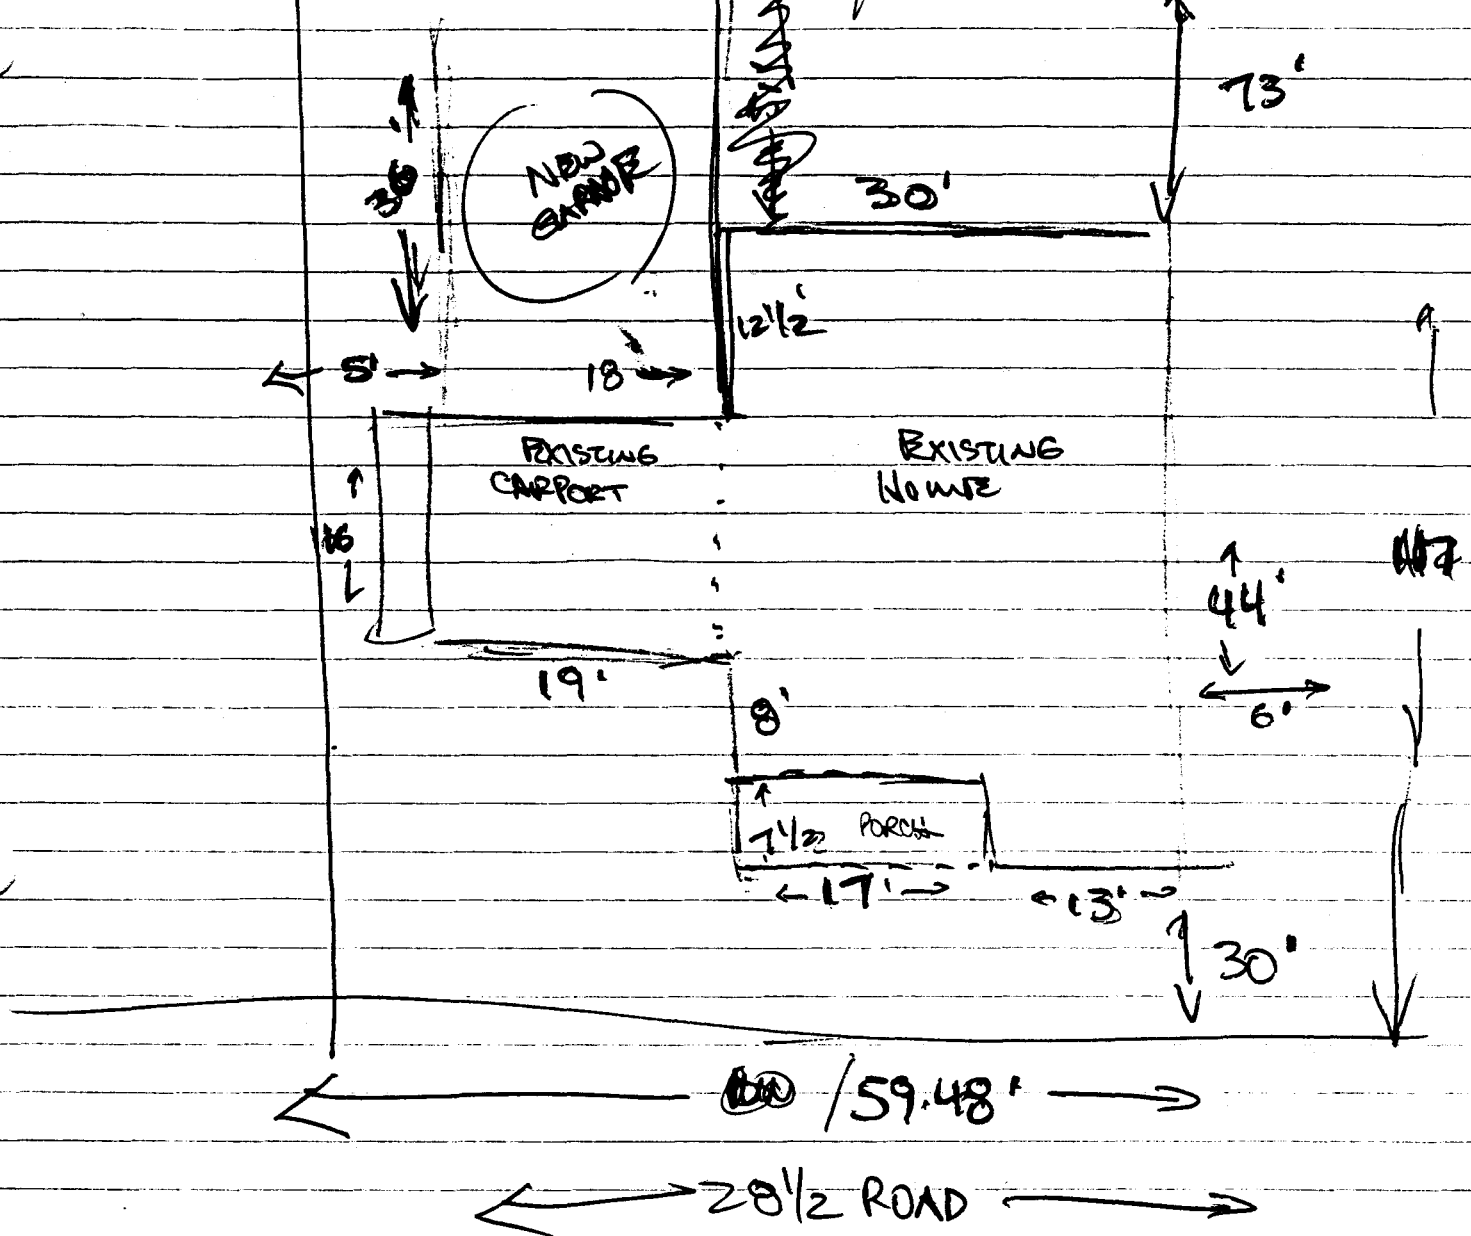 73'
NEW
GARAGE
36'
30'
12 1/2'
5'
18
EXISTING
CARPORT
EXISTING
HOME
44'
19'
8'
6'
7 1/2
PORCH
17'
13'
30'
/59.48'
28 1/2 ROAD